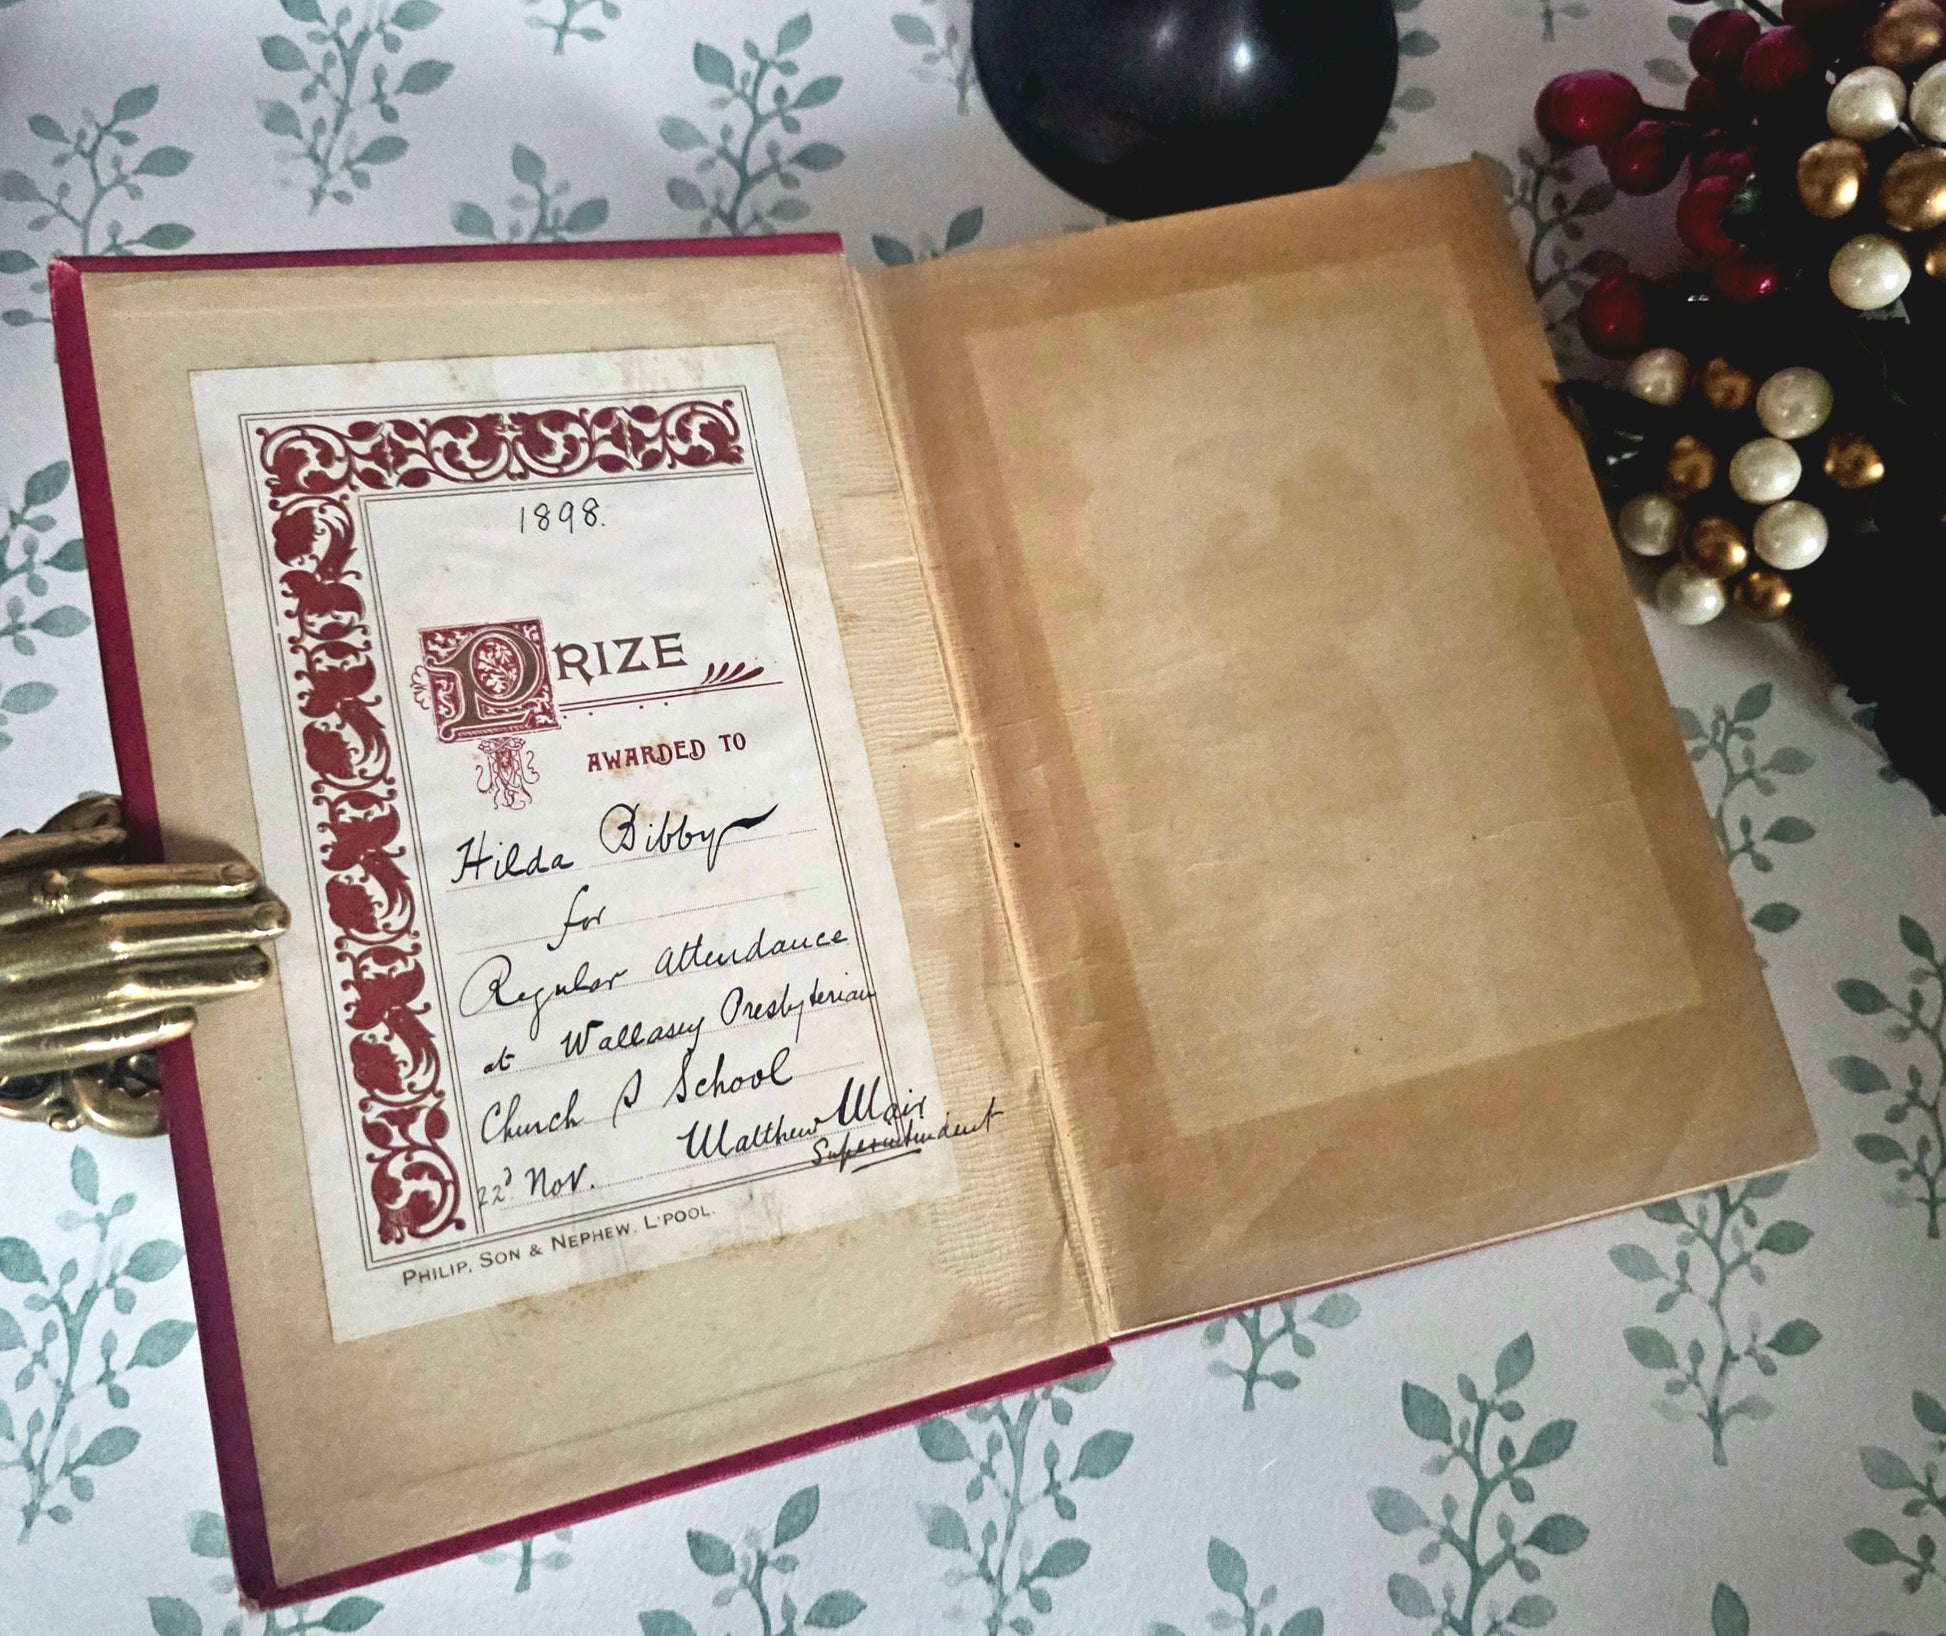 1898.
PRIZE
AWARDED TO
Hilda Bibby
for
Regular Attendance
at Wallasey Presbyterian
Church S School
Matthew Mair
Superintendent
22d Nov.
PHILIP, SON & NEPHEW, L'POOL.